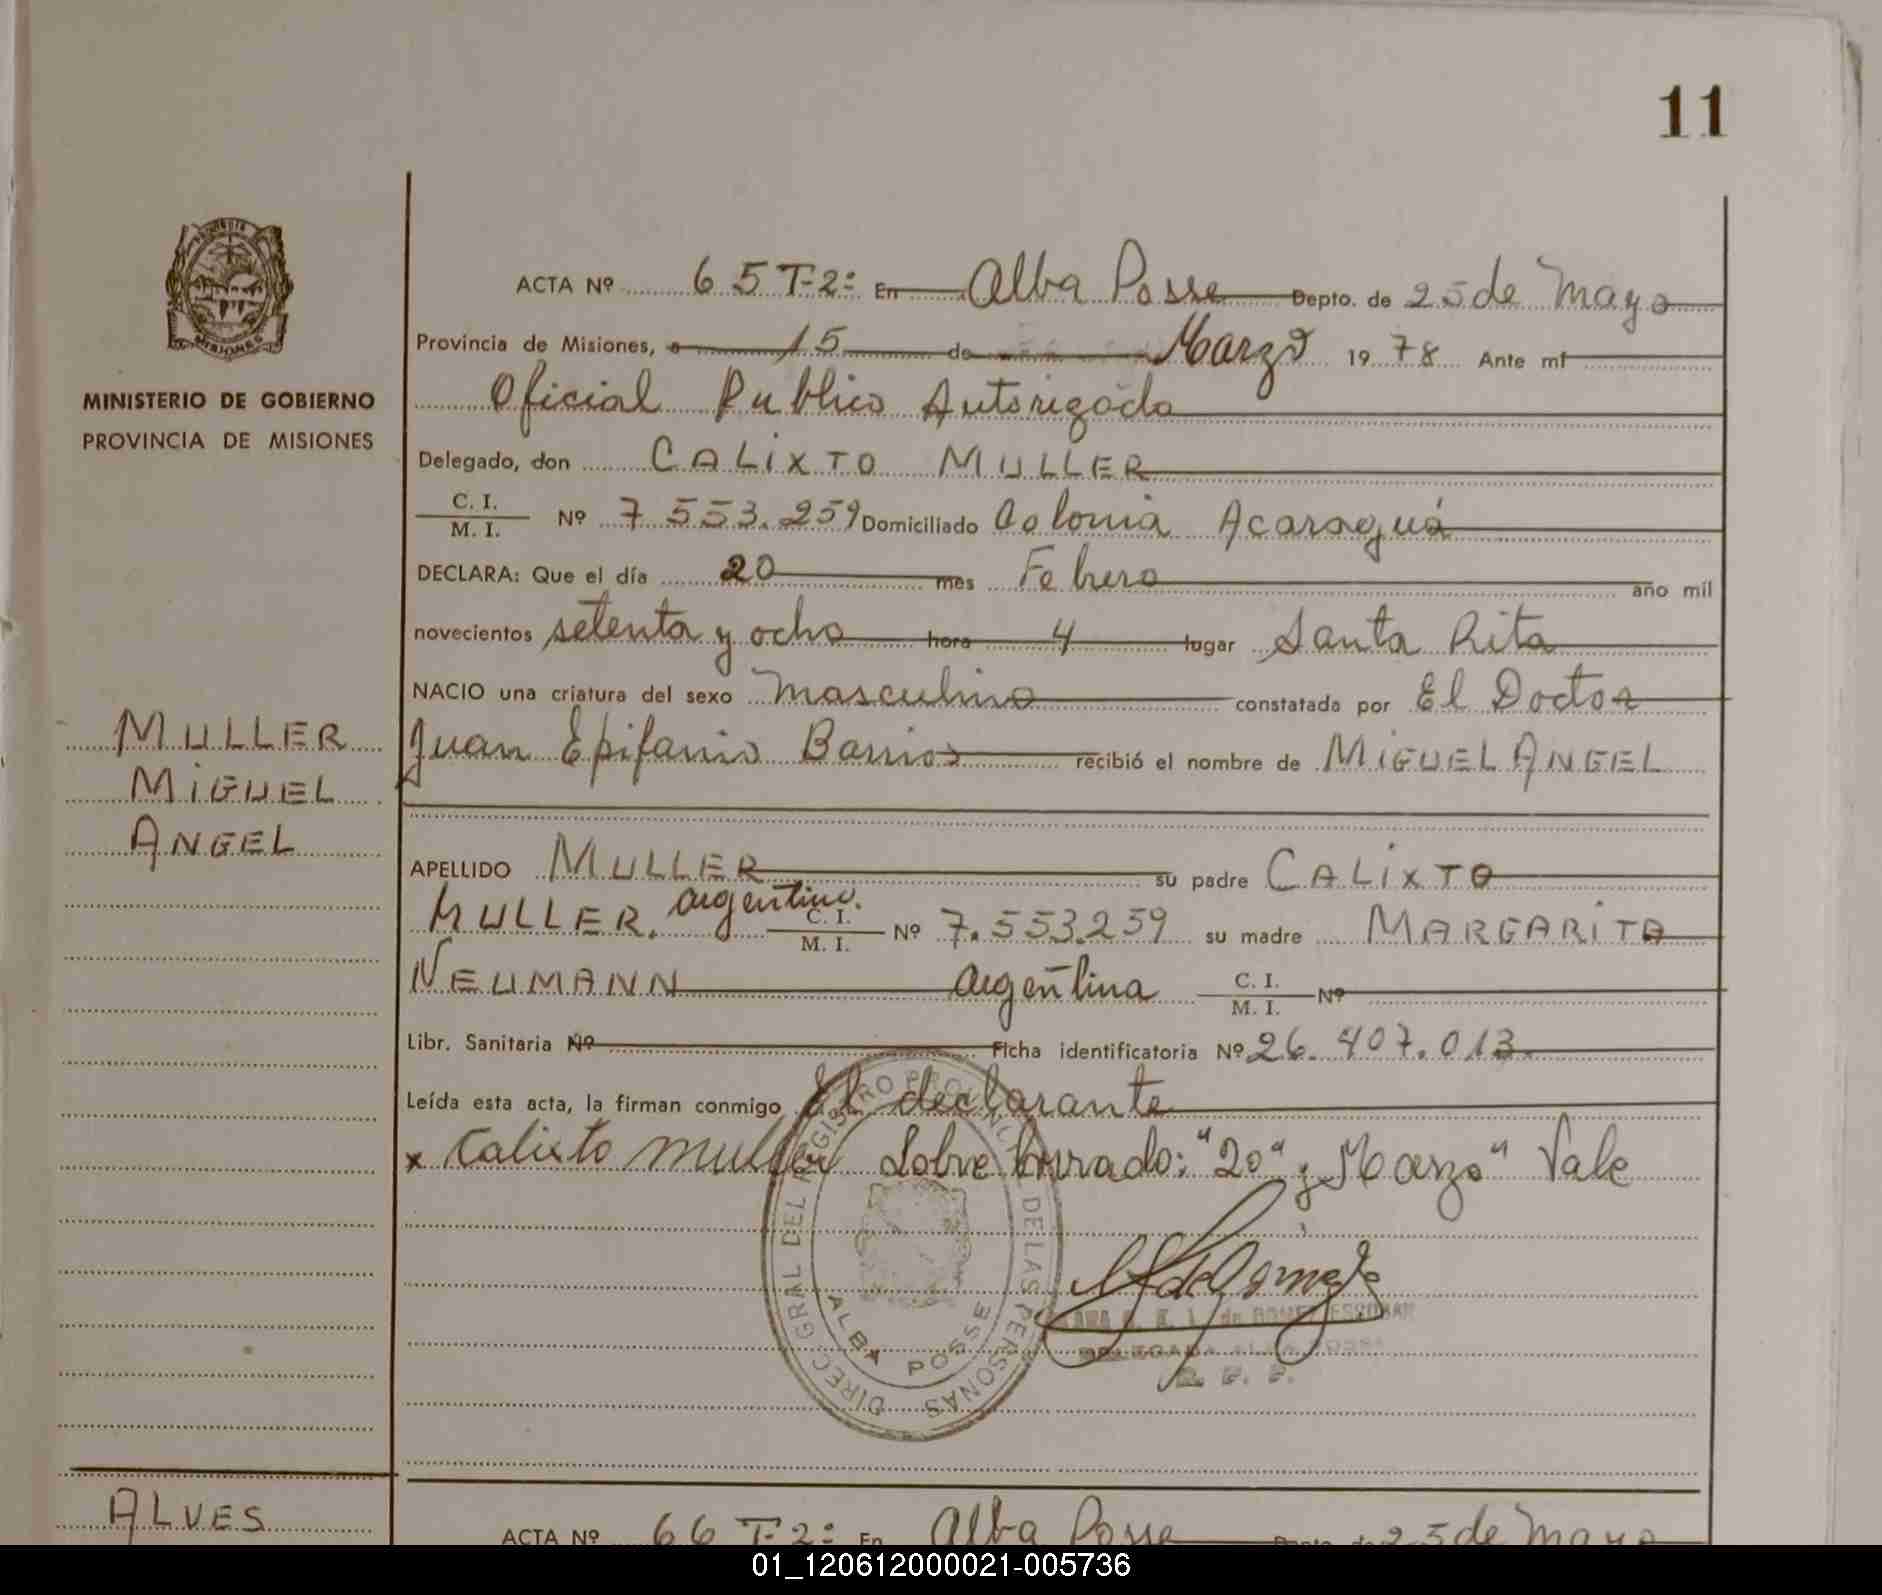 11
MINISTERIO DE GOBIERNO
PROVINCIA DE MISIONES
ACTA Nº 65 T-2: En Alba Posse Depto. de 25 de Mayo
Provincia de Misiones, a 15 de Marzo 1978 Ante mí
Oficial Publico Autorizado
Delegado, don CALIXTO MULLER
C. I.
M. I. Nº 7.553.259 Domiciliado Colonia Acaraguá
DECLARA: Que el día 20 mes Febrero año mil
novecientos setenta y ocho hora 4 lugar Santa Rita
NACIO una criatura del sexo masculino constatada por El Doctor
Juan Epifanio Barrios recibió el nombre de MIGUEL ANGEL
MULLER
MIGUEL
ANGEL
APELLIDO MULLER su padre CALIXTO
MULLER. argentino. C. I. M. I. Nº 7.553.259 su madre MARGARITA
NEUMANN argentina C. I. M. I. Nº
Libr. Sanitaria Nº Ficha identificatoria Nº 26.407.013.
Leída esta acta, la firman conmigo El declarante
x Calixto muller Sobre borrado: "20" y "Marzo" Vale
DIREC. GRAL DEL REGISTRO PROVINCIAL DE LAS PERSONAS
ALBA POSSE
ALVES
ACTA Nº 66 T-2: En Alba Posse Depto. de 25 de Mayo
01_120612000021-005736